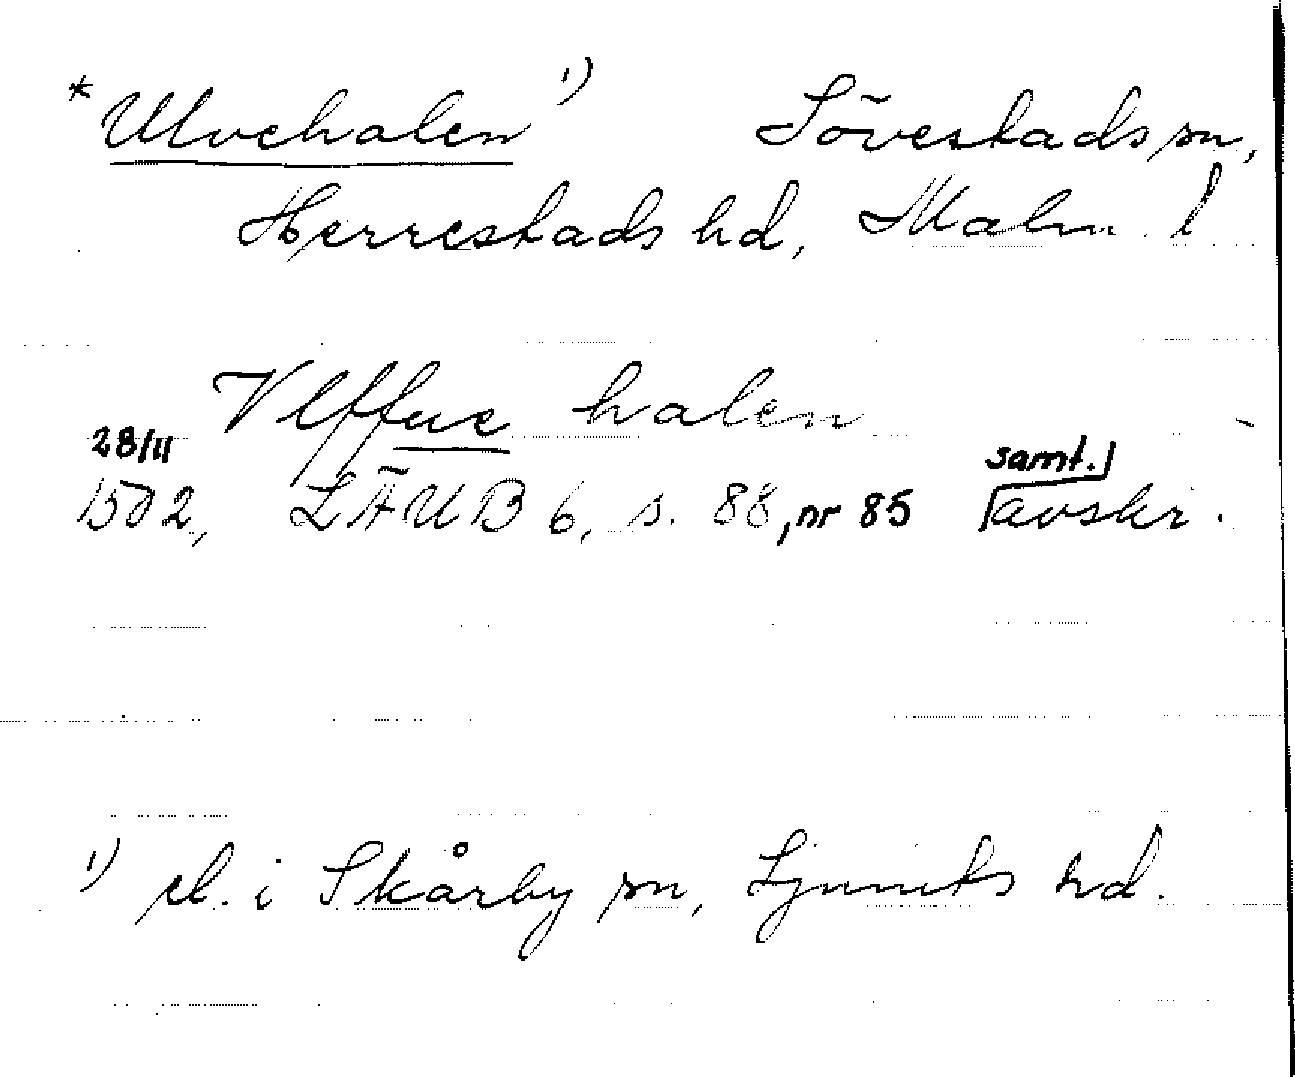 *Ulvehalen ¹) Sövestads sn,
Herrestads hd, Malm. l
Vlffue halen
28/11 samt.
1502, LÄUB 6, s. 88, nr 85 avskr.
¹) el. i Skårby sn, Ljunits hd.